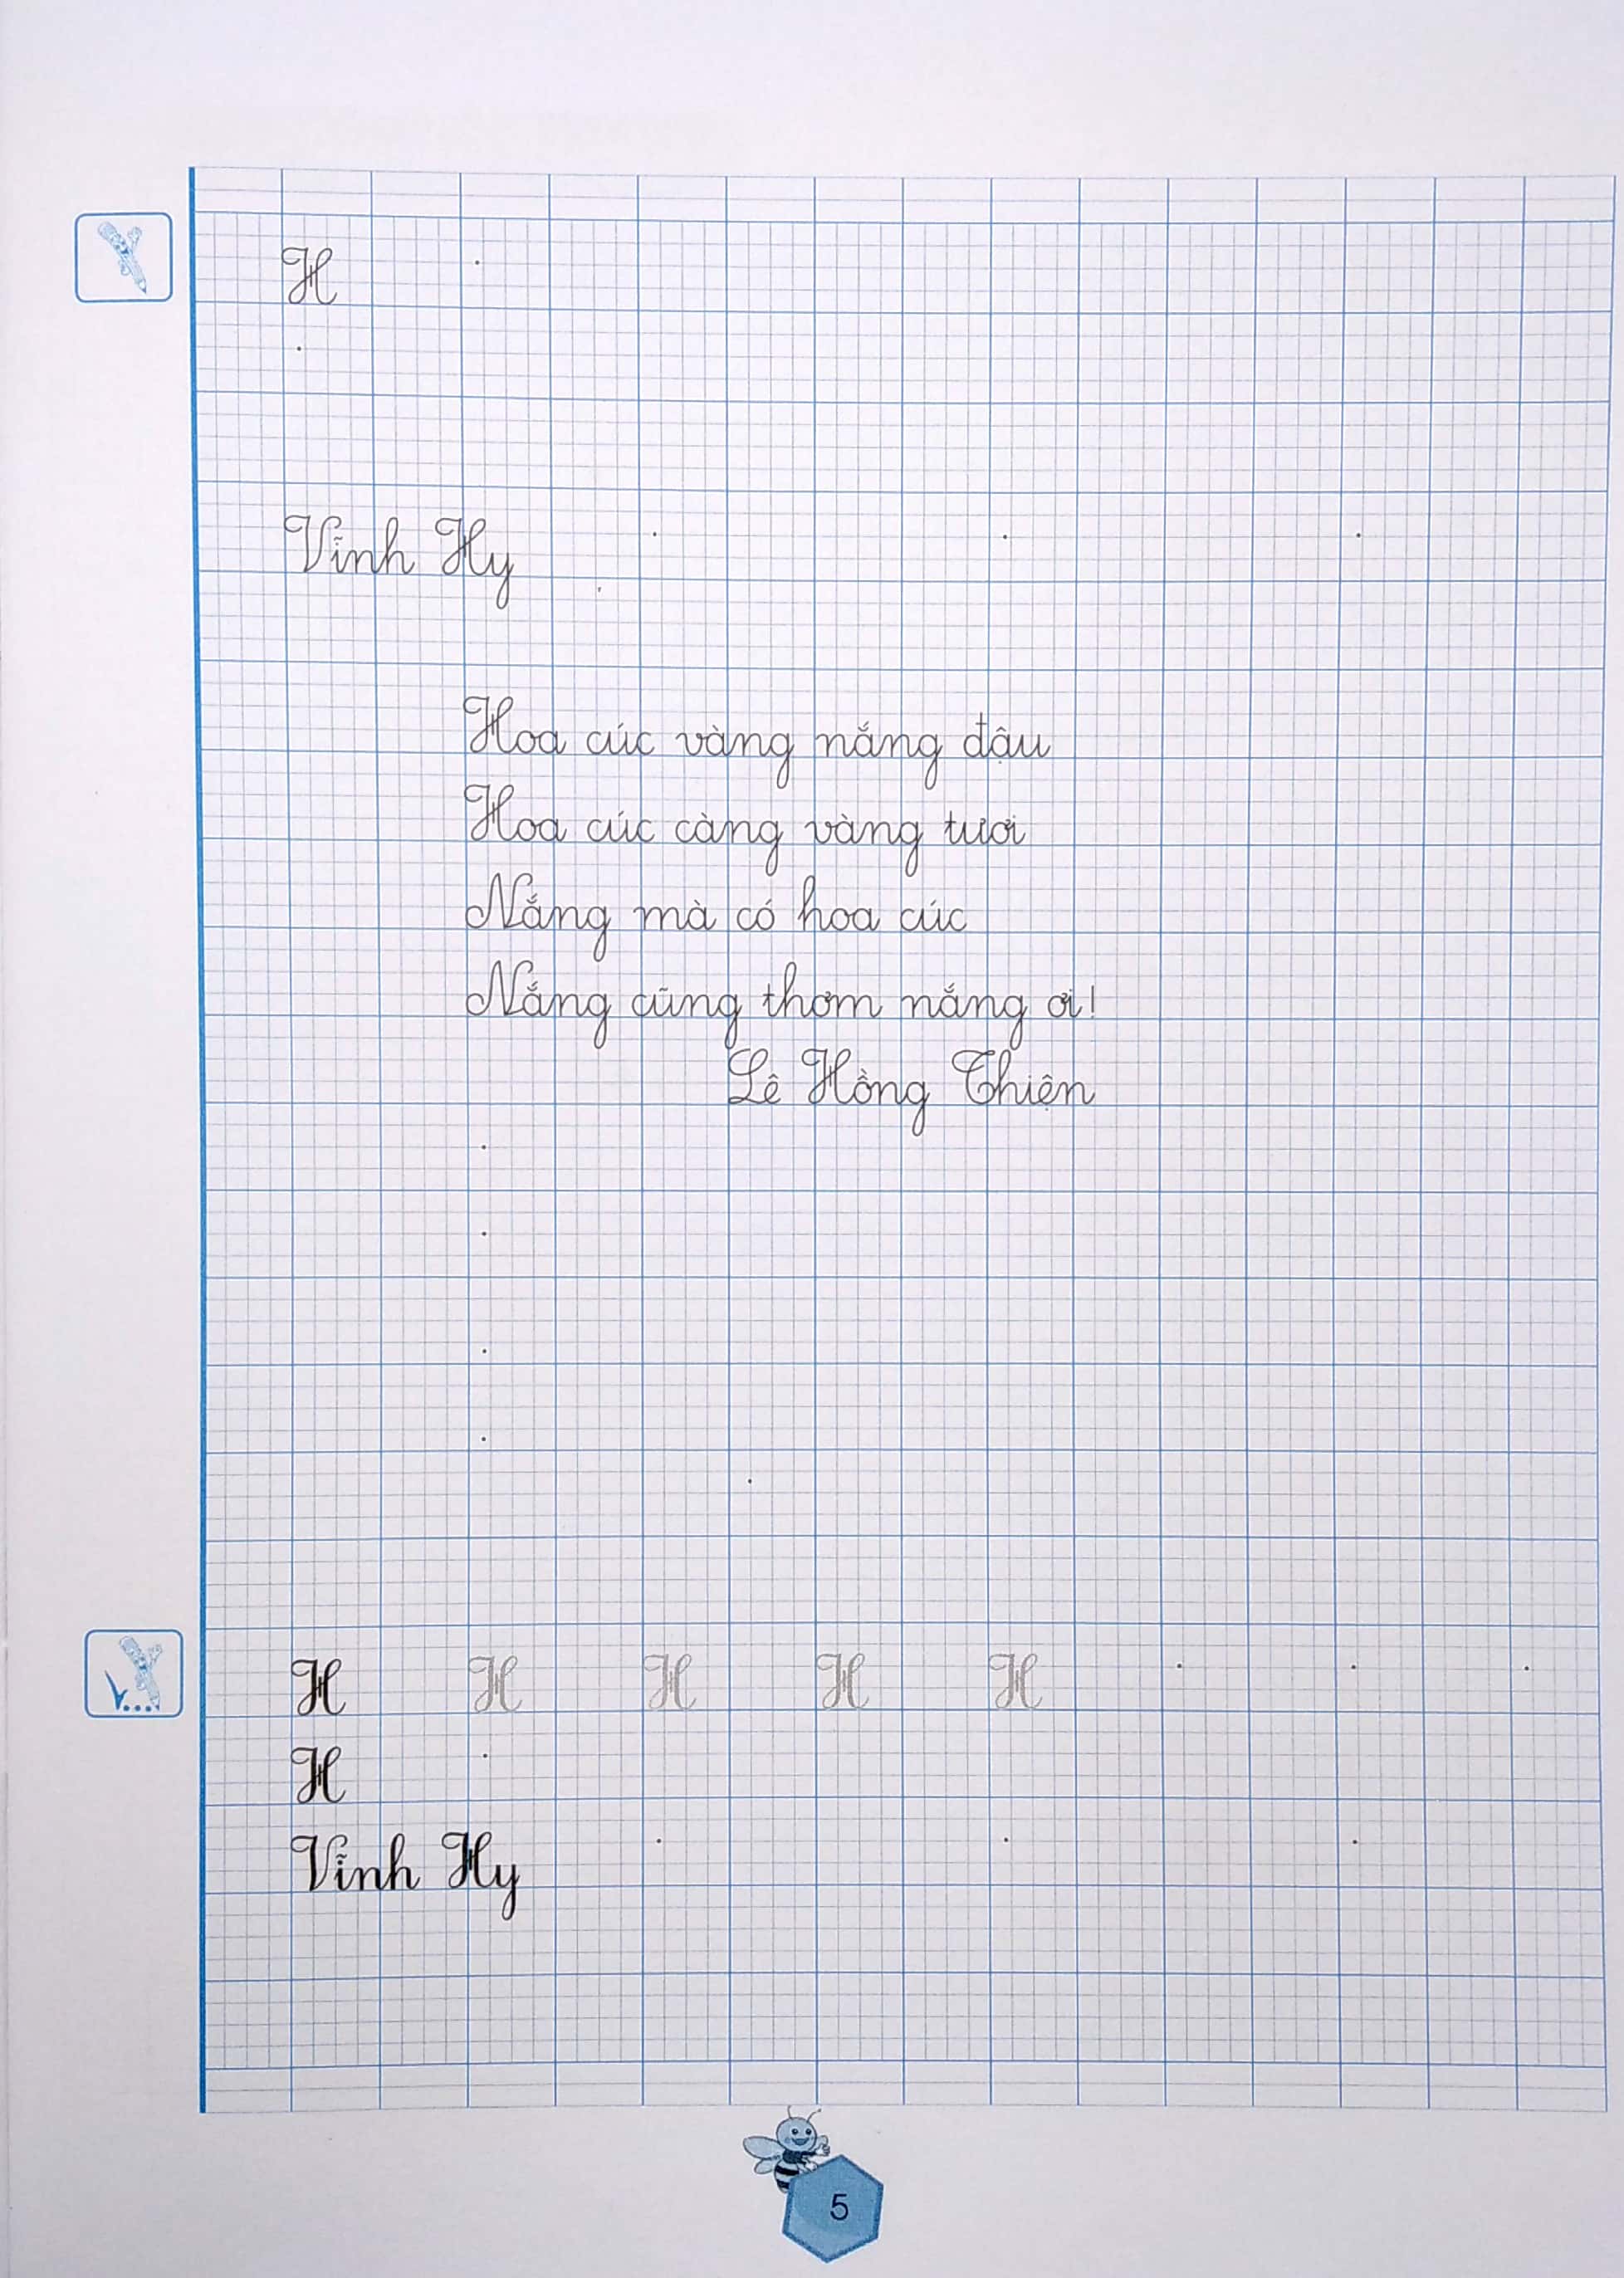 H
Vĩnh Hy
Hoa cúc vàng nắng đậu
Hoa cúc càng vàng tươi
Nắng mà có hoa cúc
Nắng cũng thơm nắng ơi!
Lê Hồng Thiện
H H H H H
H
Vĩnh Hy
5